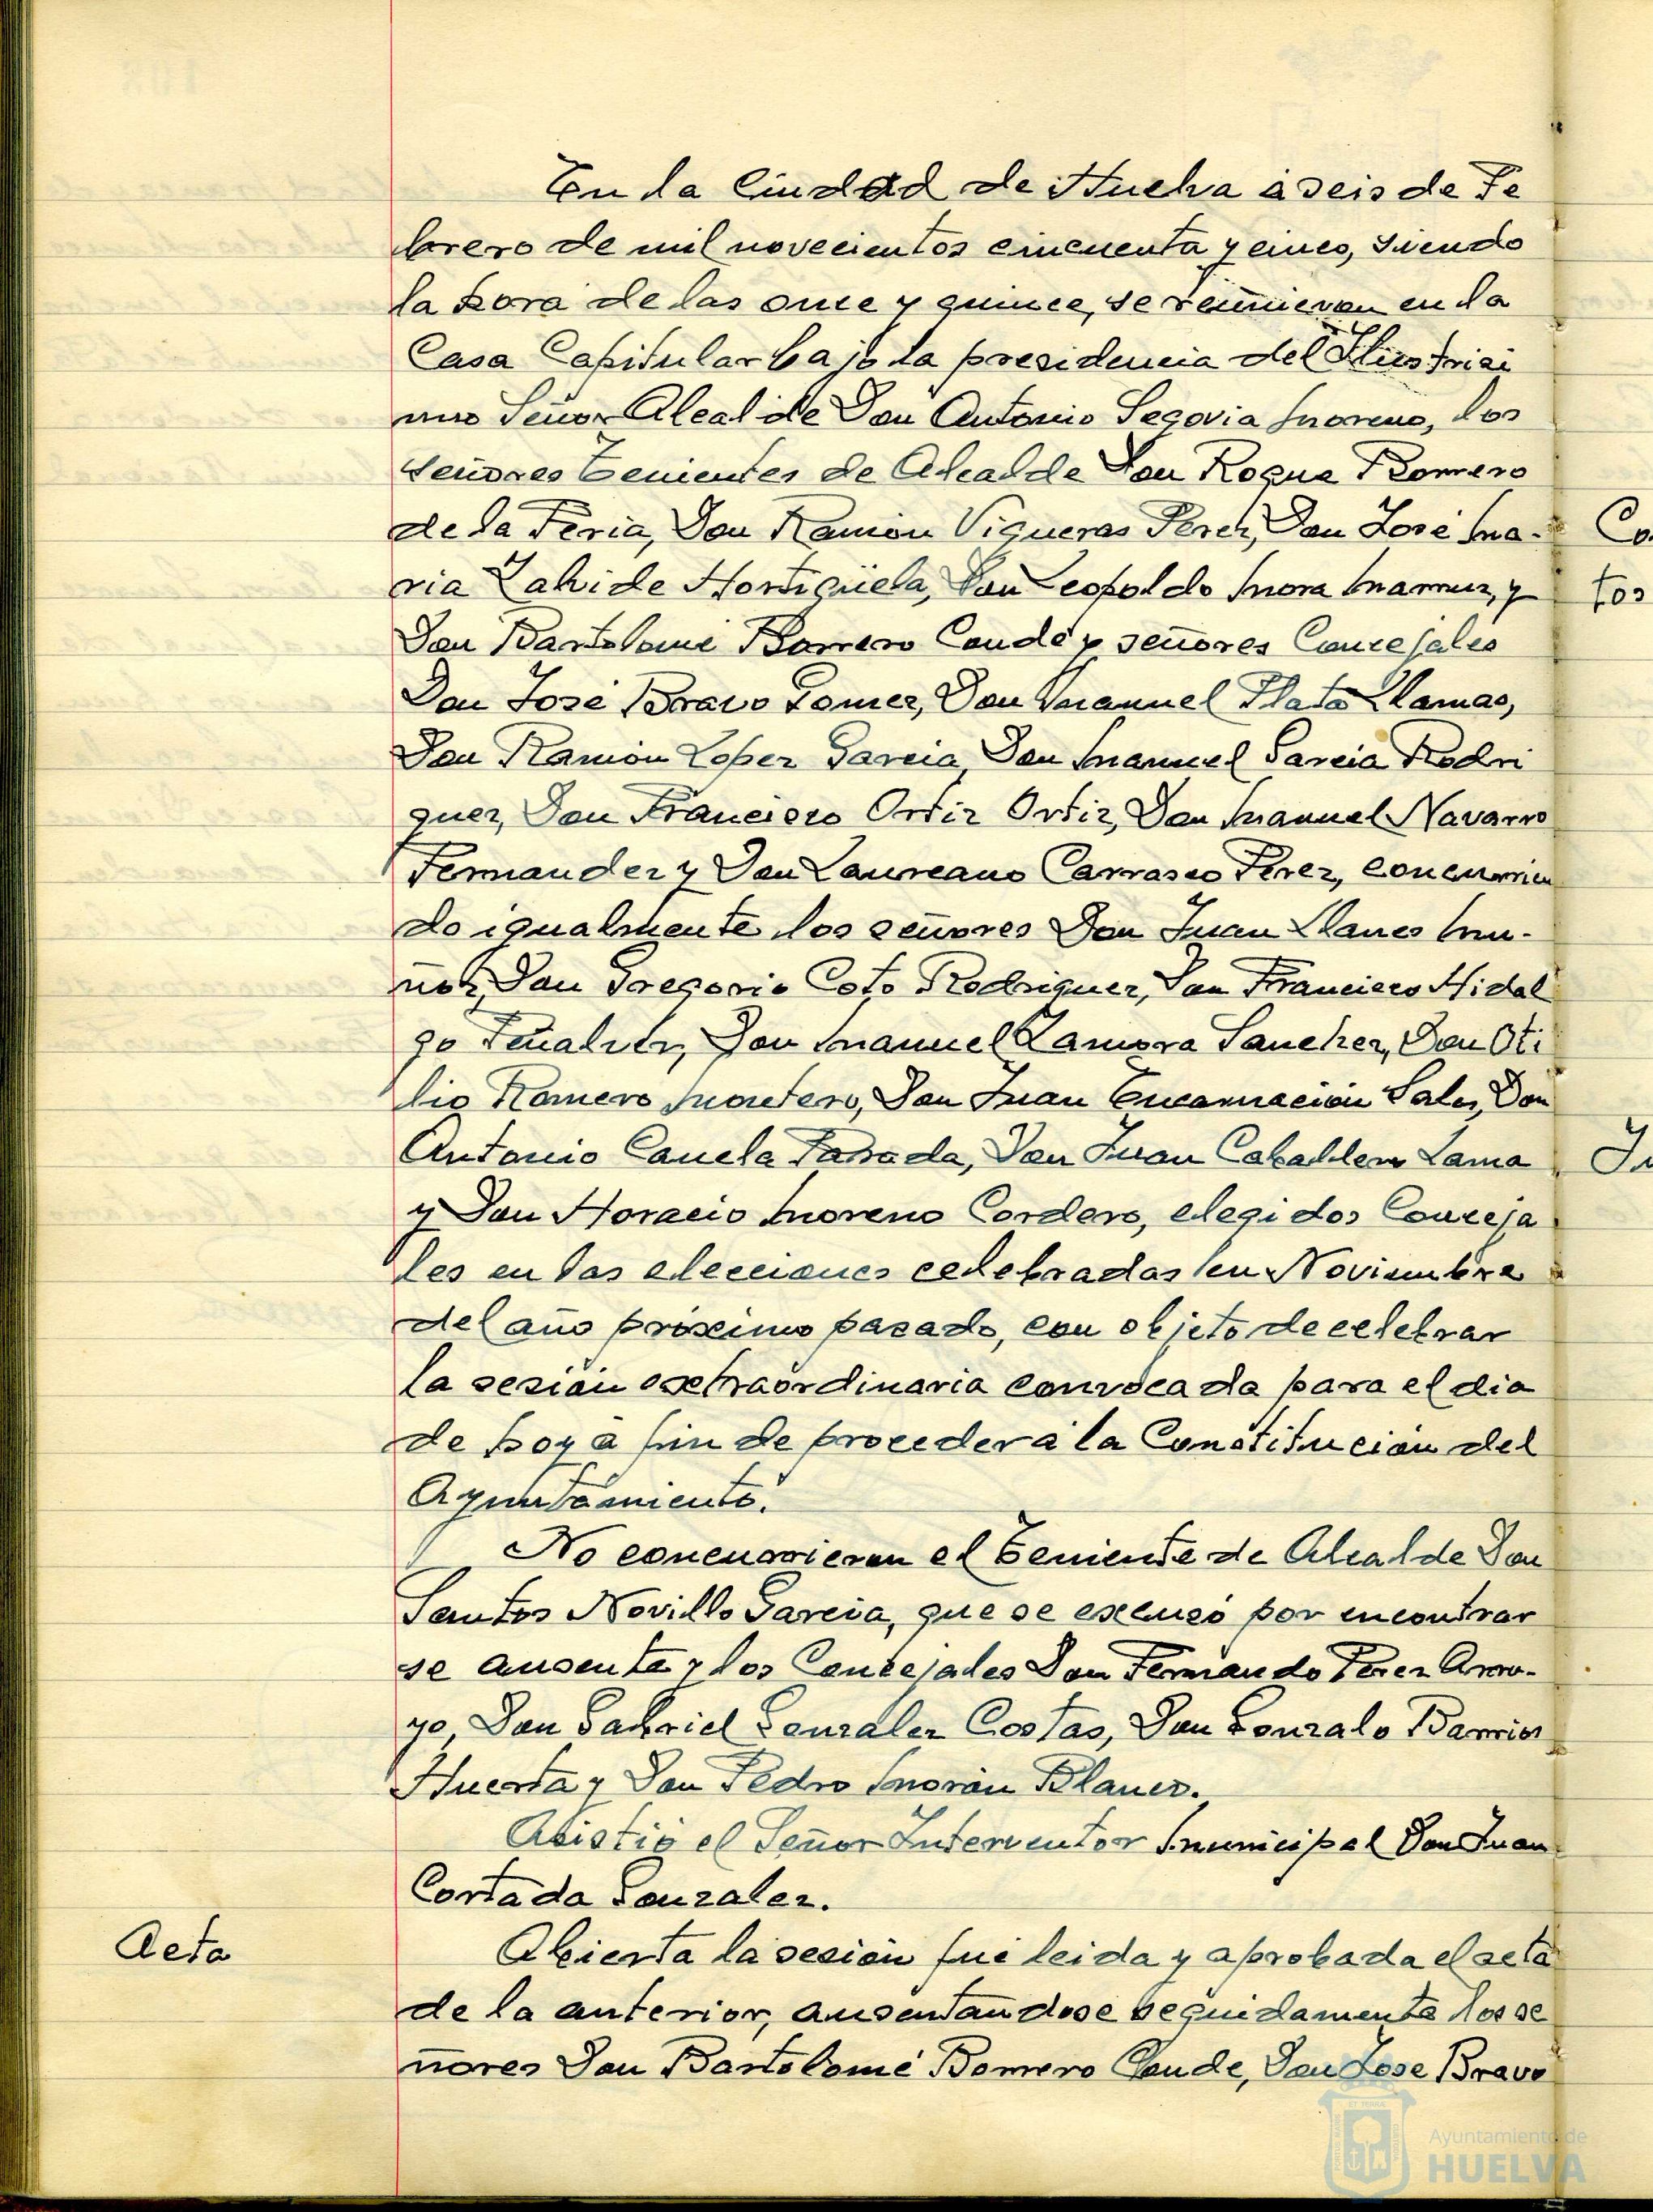 En la Ciudad de Huelva á seis de Fe
brero de mil novecientos cincuenta y cinco, siendo
la hora de las once y quince, se reunieron en la
Casa Capitular bajo la presidencia del Ilustrisi
mo Señor Alcalde Don Antonio Segovia Moreno, los
señores Tenientes de Alcalde Don Roque Romero
de la Feria, Don Ramón Vigueras Perez, Don José Ma-
ria Zalvide Hortigüela, Don Leopoldo Mora y
Don Bartolomé Borrero Conde y señores Concejales
Don José Bravo Gomez, Don Manuel Plata Llamas,
Don Ramón Lopez Garcia, Don Manuel Garcia Rodri
guez, Don Francisco Ortiz Ortiz, Don Manuel Navarro
Fernandez y Don Laureano Carrasco Perez, concurrien
do igualmente los señores Don Juan Llanes Mu-
ñoz, Don Gregorio Coto Rodriguez, Don Francisco Hidal
go Peñalver, Don Manuel Zamora Sanchez, Don Oti
lio Romero Montero, Don Juan Encarnación Don
Antonio Canela Parada, Don Juan Caballero Lama
y Don Horacio Moreno Cordero, elegidos Conceja
les en las elecciones celebradas en Noviembre
del año próximo pasado, con objeto de celebrar
la sesión extraordinaria convocada para el dia
de hoy á fin de proceder á la Constitución del
Ayuntamiento.
No concurrieron el Teniente de Alcalde Don
Santos Novillo Garcia, que se excusó por encontrar
se ausente y los Concejales Don Fernando Perez Arro-
yo, Don Gabriel Gonzalez Costas, Don Gonzalo Barrios
Huerta y Don Pedro Morón Blanco.
Asistió el Señor Interventor Municipal Don Juan
Cortada Gonzalez.
Acta
Abierta la sesión fué leida y aprobada el acta
de la anterior, ausentandose seguidamente los se
ñores Don Bartolomé Borrero Conde, Don Jose Bravo
Co
tos
Ayuntamiento de
HUELVA